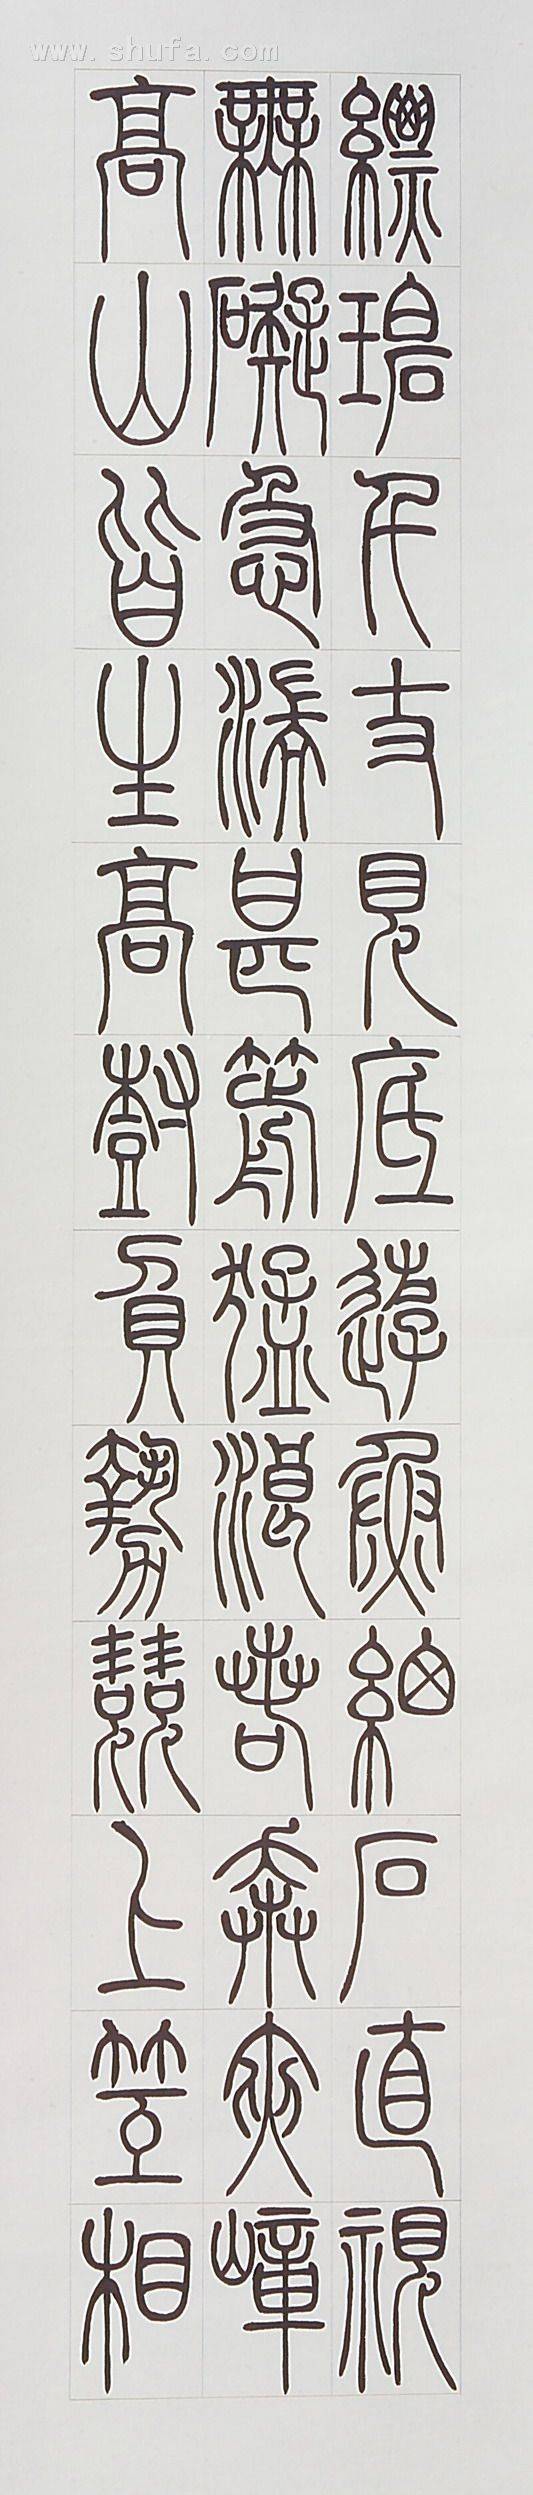 www.shufa.com
縹碧千丈見底遊魚細石直視
無礙急湍甚箭猛浪若奔夾嶂
高山皆生高樹負勢競上互相